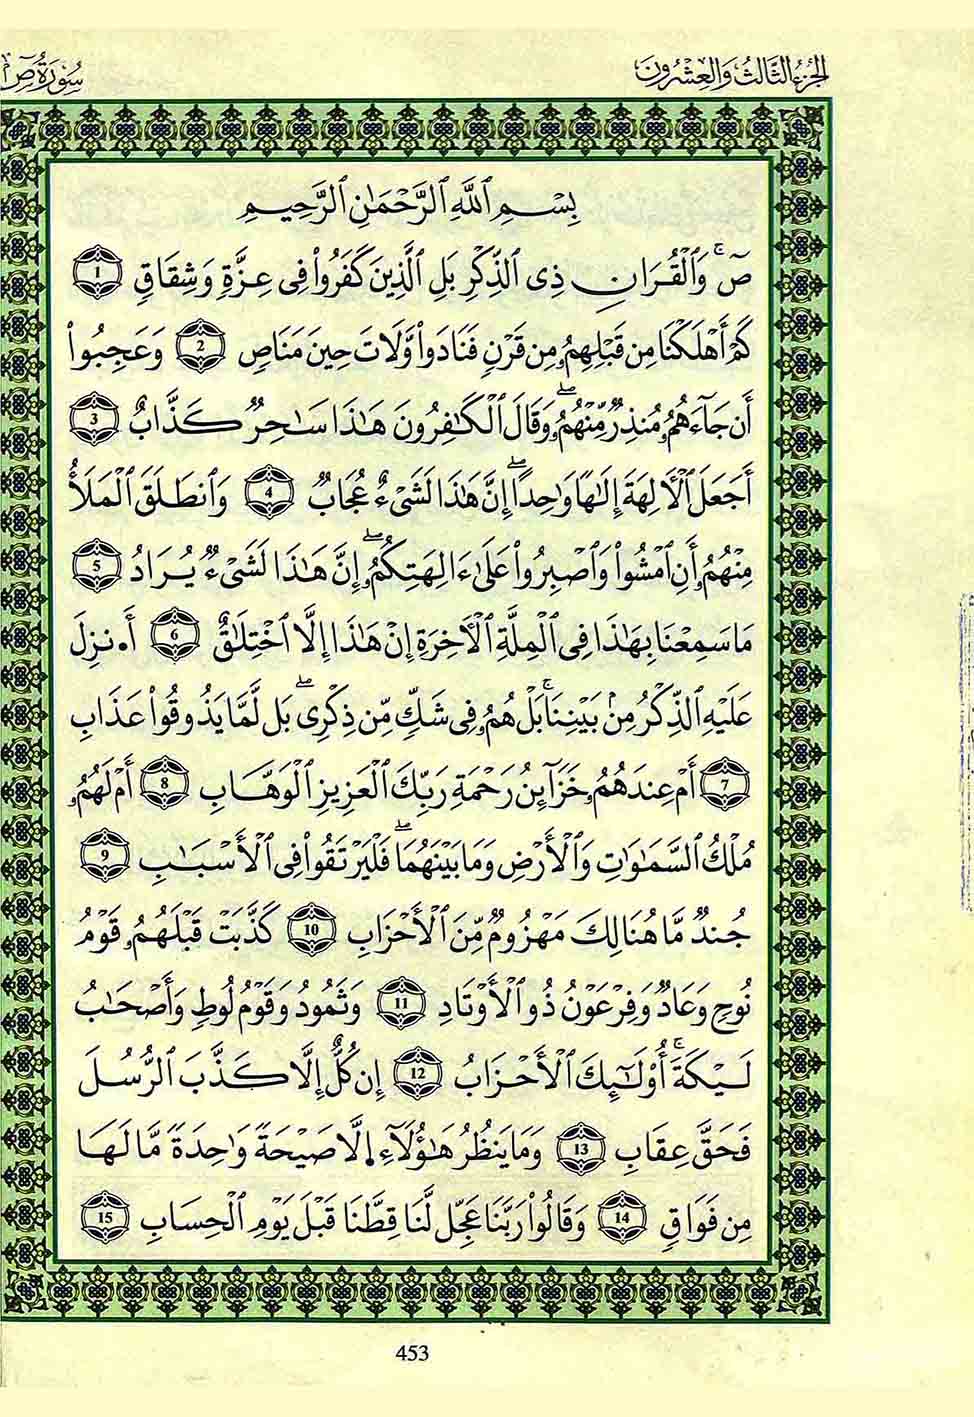 الجزء الثالث والعشرون
سورة ص
بِسْمِ ٱللَّهِ ٱلرَّحْمَٰنِ ٱلرَّحِيمِ
صٓۚ وَٱلْقُرَانِ ذِى ٱلذِّكْرِ بَلِ ٱلَّذِينَ كَفَرُوا۟ فِى عِزَّةٍ وَشِقَاقٍ 1
كَمْ أَهْلَكْنَا مِن قَبْلِهِمُۥ مِن قَرْنٍ فَنَادَوا۟ وَّلَاتَ حِينَ مَنَاصٍ 2 وَعَجِبُوٓا۟
أَن جَآءَهُمُۥ مُنذِرٌ مِّنْهُمُۥۖ وَقَالَ ٱلْكَٰفِرُونَ هَٰذَا سَٰحِرٌ كَذَّابٌ 3
أَجَعَلَ ٱلْأَلِهَةَ إِلَٰهًا وَٰحِدًاۖ إِنَّ هَٰذَا لَشَىْءٌ عُجَابٌ 4 وَٱنطَلَقَ ٱلْمَلَأُ
مِنْهُمُۥ أَنِ ٱمْشُوا۟ وَٱصْبِرُوا۟ عَلَىٰ ءَالِهَتِكُمُۥۖ إِنَّ هَٰذَا لَشَىْءٌ يُرَادُ 5
مَا سَمِعْنَا بِهَٰذَا فِى ٱلْمِلَّةِ ٱلْأَخِرَةِ إِنْ هَٰذَا إِلَّا ٱخْتِلَٰقٌ 6 أَ۟نزِلَ
عَلَيْهِ ٱلذِّكْرُ مِنۢ بَيْنِنَاۚ بَلْ هُمُۥ فِى شَكٍّ مِّن ذِكْرِىۖ بَل لَّمَّا يَذُوقُوا۟ عَذَابِ
7 أَمْ عِندَهُمُۥ خَزَآئِنُ رَحْمَةِ رَبِّكَ ٱلْعَزِيزِ ٱلْوَهَّابِ 8 أَمْ لَهُمُۥ
مُلْكُ ٱلسَّمَٰوَٰتِ وَٱلْأَرْضِ وَمَا بَيْنَهُمَاۖ فَلْيَرْتَقُوا۟ فِى ٱلْأَسْبَٰبِ 9
جُندٌ مَّا هُنَالِكَ مَهْزُومٌ مِّنَ ٱلْأَحْزَابِ 10 كَذَّبَتْ قَبْلَهُمُۥ قَوْمُ
نُوحٍ وَعَادٌ وَفِرْعَوْنُ ذُو ٱلْأَوْتَادِ 11 وَثَمُودُ وَقَوْمُ لُوطٍ وَأَصْحَٰبُ
لَيْكَةَۚ أُو۟لَٰٓئِكَ ٱلْأَحْزَابُ 12 إِن كُلٌّ إِلَّا كَذَّبَ ٱلرُّسُلَ
فَحَقَّ عِقَابِ 13 وَمَا يَنظُرُ هَٰؤُلَآءِ إِلَّا صَيْحَةً وَٰحِدَةً مَّا لَهَا
مِن فَوَاقٍ 14 وَقَالُوا۟ رَبَّنَا عَجِّل لَّنَا قِطَّنَا قَبْلَ يَوْمِ ٱلْحِسَابِ 15
453